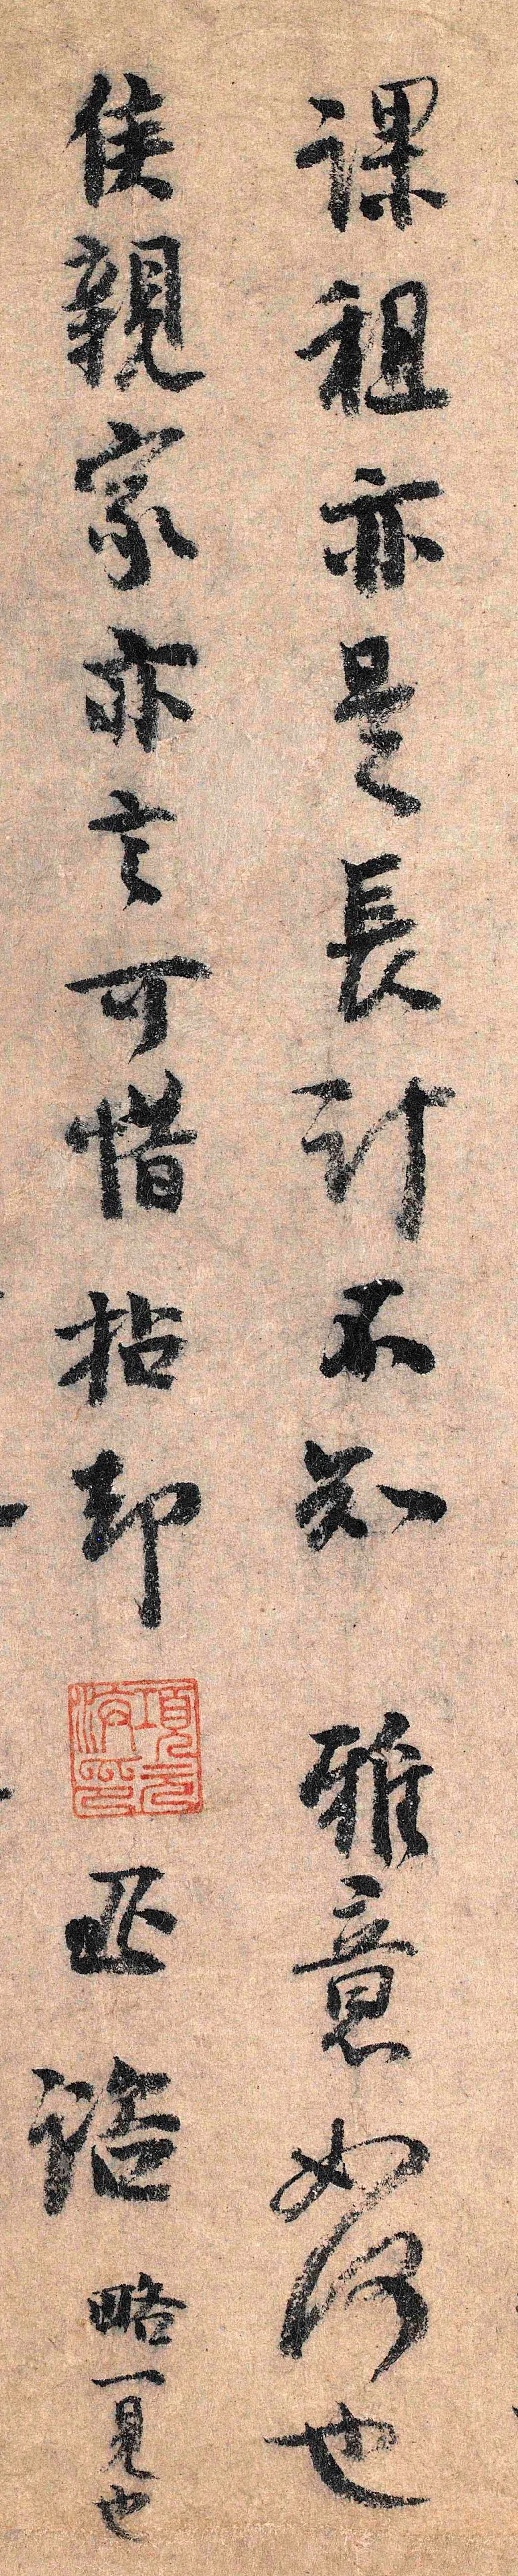 課租亦是長計不知雅意如何也
侯親家亦言可惜拈却亟詣略一見也
項元汴印